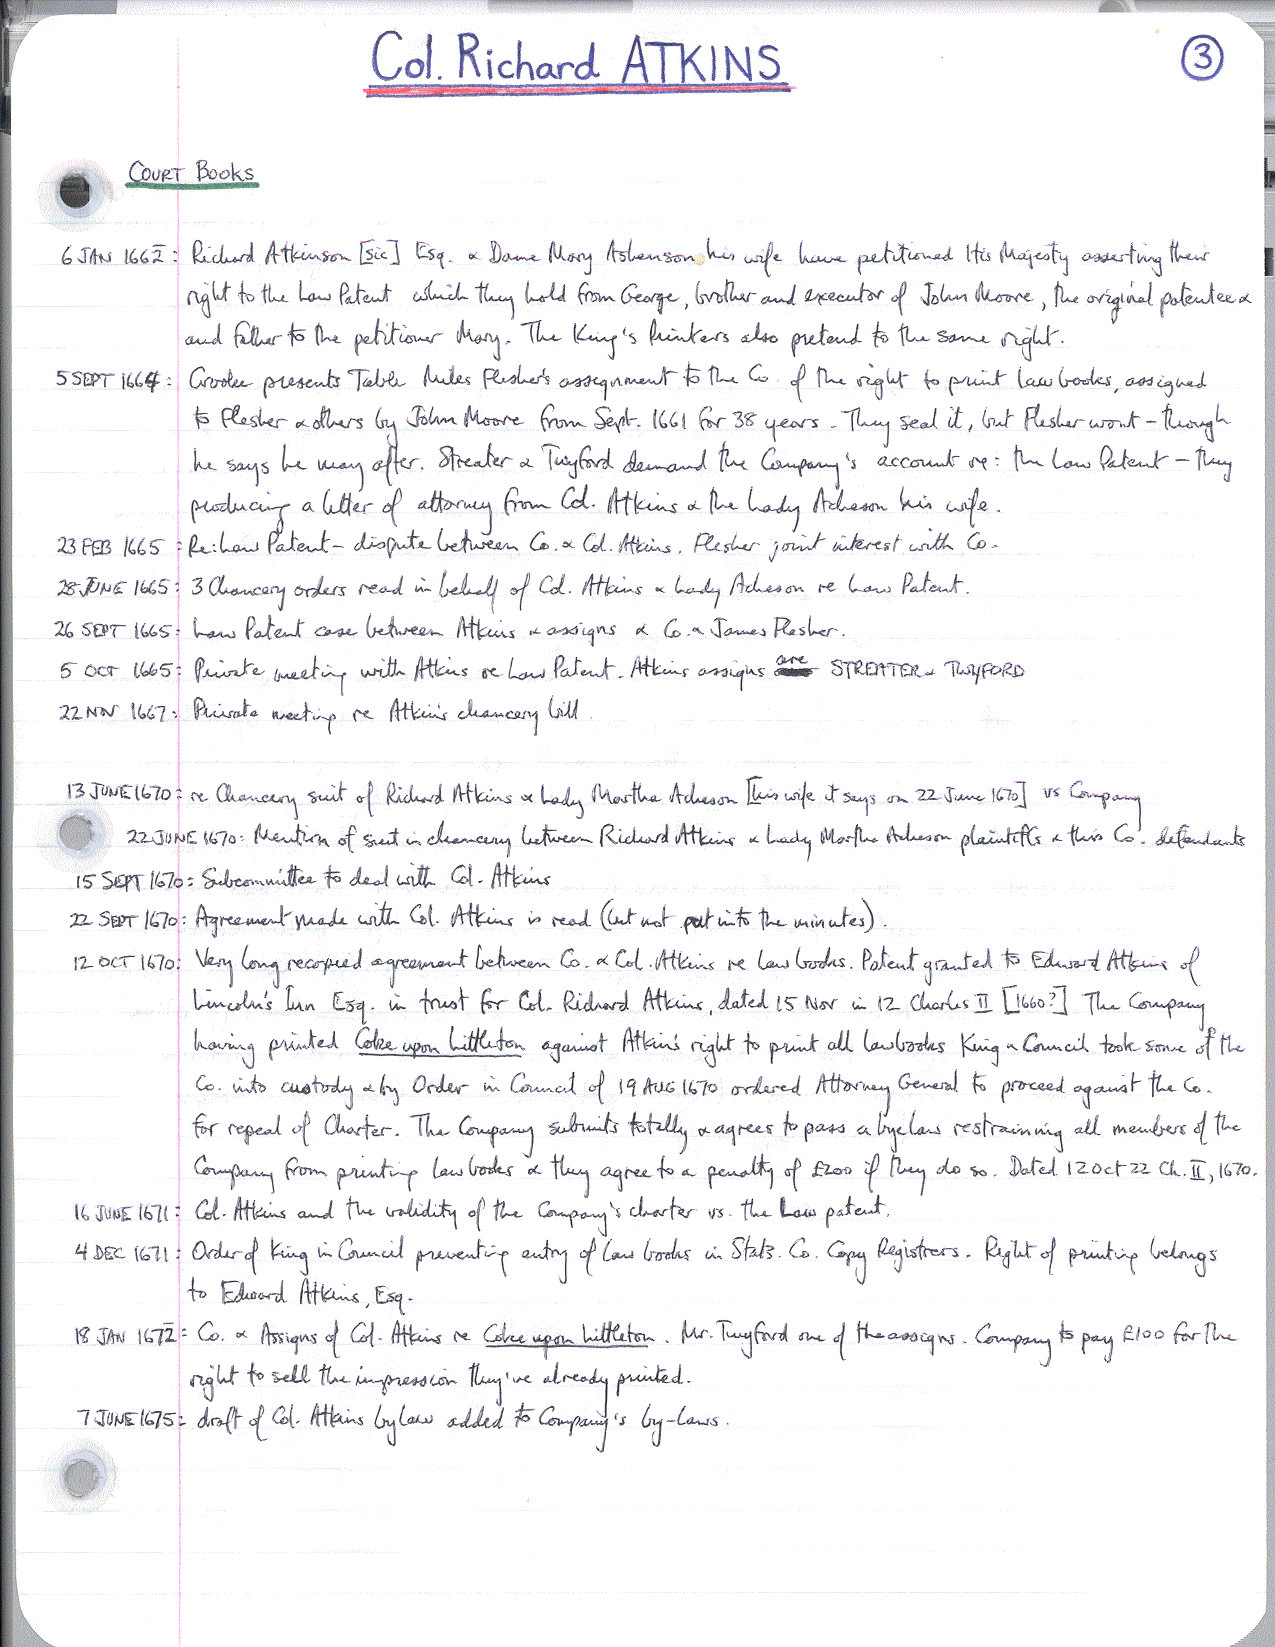 Col. Richard ATKINS
3
COURT BOOKS
6 JAN 1662: Richard Atkinson [sic] Esq. & Dame Mary Ashenson his wife have petitioned His Majesty asserting their
right to the Law Patent which they hold from George, brother and executor of John Moore, the original patentee &
and father to the petitioner Mary. The King's Printers also pretend to the same right.
5 SEPT 1664: Crooke presents Table Miles Flesher's assignment to the Co. of the right to print law books, assigned
to Flesher & others by John Moore from Sept. 1661 for 38 years. They seal it, but Flesher wont - though
he says he may after. Streater & Twyford demand the Company's account re: the Law Patent - they
producing a letter of attorney from Col. Atkins & the Lady Acheson his wife.
23 FEB 1665: Re: Law Patent - dispute between Co. & Col. Atkins. Flesher joint interest with Co.
28 JUNE 1665: 3 Chancery orders read in behalf of Col. Atkins & Lady Acheson re Law Patent.
26 SEPT 1665: Law Patent case between Atkins & assigns & Co. & James Flesher.
5 OCT 1665: Private meeting with Atkins re Law Patent. Atkins assigns are STREATER & TWYFORD
22 NOV 1667: Private meeting re Atkin's chancery bill.
13 JUNE 1670: re Chancery suit of Richard Atkins & Lady Martha Acheson [his wife it says on 22 June 1670] vs Company
22 JUNE 1670: Mention of suit in chancery between Richard Atkins & Lady Martha Acheson plaintiffs & this Co. defendants
15 SEPT 1670: Subcommittee to deal with Col. Atkins
22 SEPT 1670: Agreement made with Col. Atkins is read (but not put into the minutes).
12 OCT 1670: Very long recopied agreement between Co. & Col. Atkins re law books. Patent granted to Edward Atkins of
Lincoln's Inn Esq. in trust for Col. Richard Atkins, dated 15 Nov in 12 Charles II [1660?] The Company
having printed Coke upon Littleton against Atkin's right to print all lawbooks King & Council took some of the
Co. into custody & by Order in Council of 19 AUG 1670 ordered Attorney General to proceed against the Co.
for repeal of Charter. The Company submits totally & agrees to pass a byelaw restraining all members of the
Company from printing law books & they agree to a penalty of £200 if they do so. Dated 12 Oct 22 Ch. II, 1670.
16 JUNE 1671: Col. Atkins and the validity of the Company's charter vs. the Law patent.
4 DEC 1671: Order of King in Council preventing entry of law books in Stat. Co. Copy Registrers. Right of printing belongs
to Edward Atkins, Esq.
18 JAN 1672: Co. & Assigns of Col. Atkins re Coke upon Littleton. Mr. Twyford one of the assigns. Company to pay £100 for the
right to sell the impression they've already printed.
7 JUNE 1675: draft of Col. Atkins bylaw added to Company's by-laws.